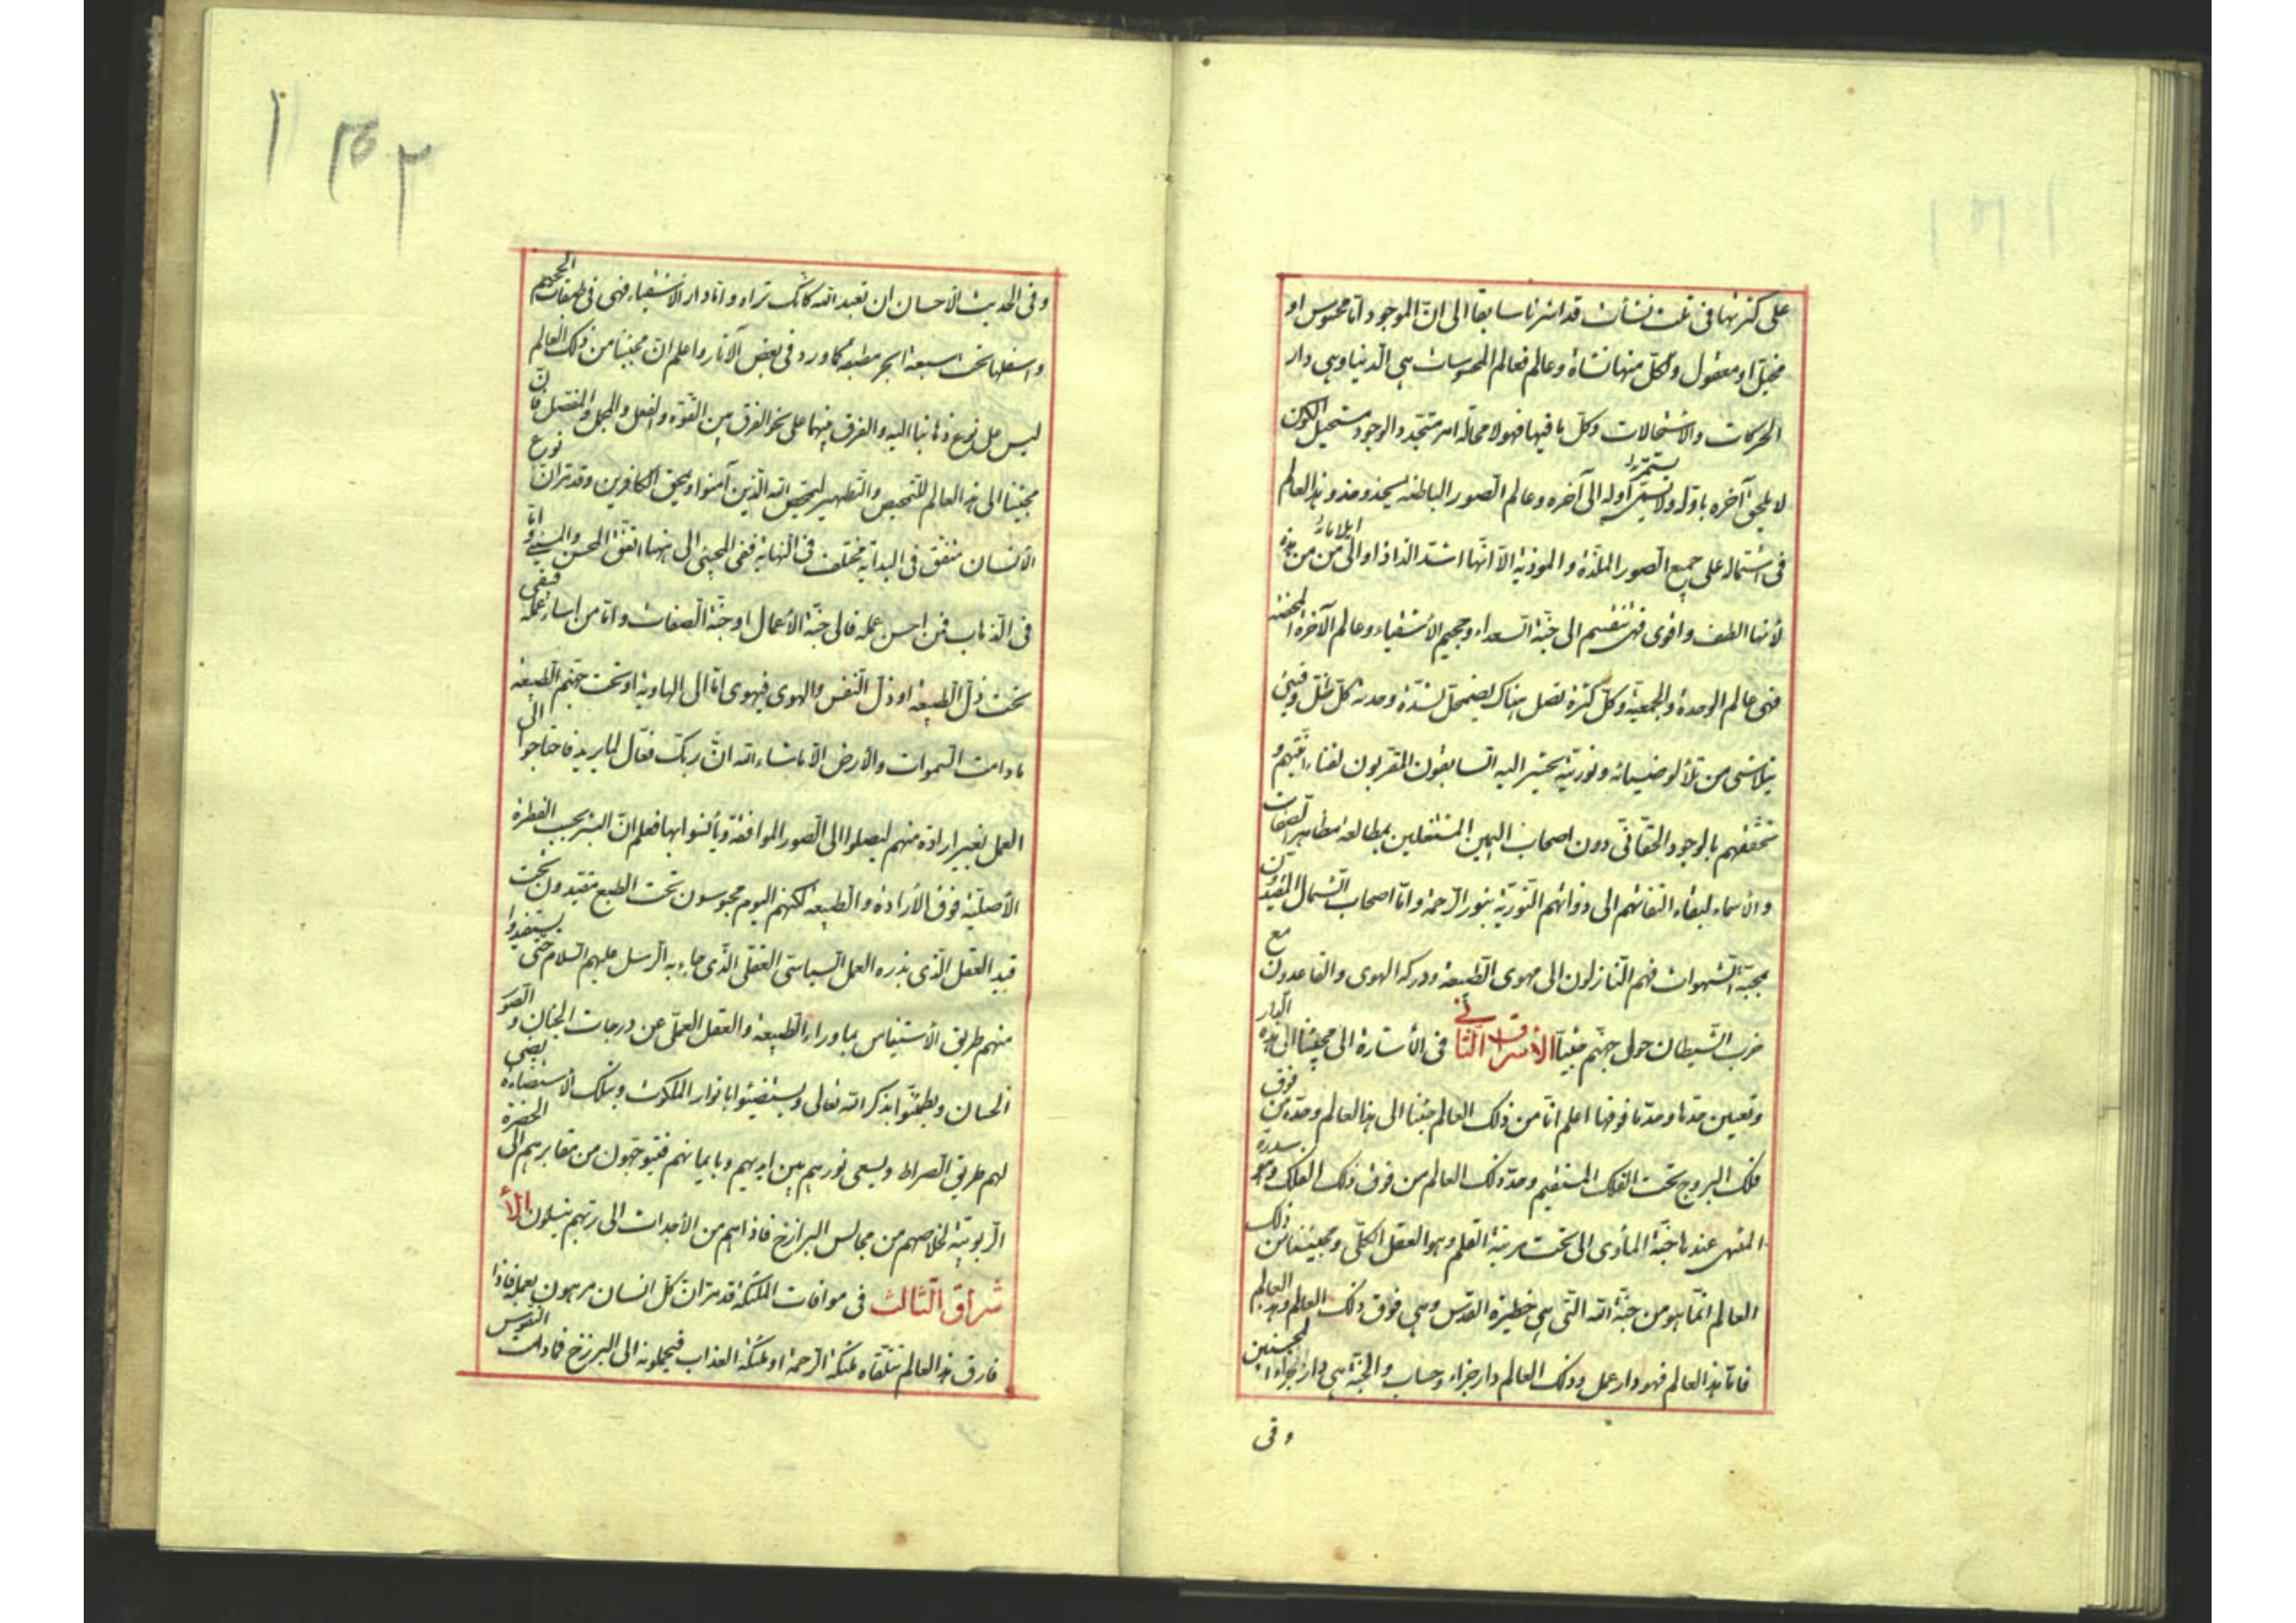 على كثرتها فى ثلث نشأت قد اشرنا سابقا الى انّ الموجود امّا محسوس او
مخيّل او معقول ولكلّ منها نشأة وعالم فعالم المحسوسات هى الدنيا وهى دار
الحركات والاستحالات وكلّ ما فيها فهو لا محالة امر متجدد الوجود مستحيل الكون
لا يلحق آخره باوله ولا يستمرّ اوله الى آخره وعالم الصور الباطنة يحذو حذو هذا العالم
فى اشتماله على جميع الصور الملذّة والموذية الّا انّها اشد الذاذا و ايلاما من هذه
لأنها الطف واقوى فهى تنقسم الى جنّة السعداء وجحيم الأشقياء وعالم الآخرة المحضة
فهى عالم الوحدة والجمعيّة وكلّ كثرة تصل هناك يضمحل لشدّة وحدته كلّ ظلّ وفيئ
يتلاشى من تلألؤ ضيائه ونوريته يحشر اليه السابقون المقربون لفناء انيّتهم و
تحققهم بالوجود الحقّانّى دون اصحاب اليمين المشتغلين بمطالعة مظاهر الصفات
والاسماء لبقاء التفاتهم الى ذواتهم النوريّة بنور الرحمة وامّا اصحاب الشمال المقيدون
بمحبّة الشهوات فهم النازلون الى مهوى الطبيعة ودركة الهوى والقاعدون مع
حزب الشيطان حول جهنّم جثيّا الأشراق الثانى فى الأشارة الى مجيئنا الى هذه الدار
وتعيين حدّها وحدّ ما فوقها اعلم انّا من ذلك العالم جئنا الى هذا العالم وحدّه من فوق
فلك البروج تحت الفلك المستقيم وحدّ ذلك العالم من فوق ذلك الفلك وهو سدرة
المنتهى عندها جنّة المأوى الى تحت مرتبة القلم وهو العقل الكلّى ومجيئنا من ذلك
العالم انّما هو من جنّة الله التّى هى حظيرة القدس وهى فوق ذلك العالم وهذا العالم
فامّا هذا العالم فهو دار عمل وذلك العالم دار جزاء وحساب والجنّة هى دار جزاء المحسنين
وفى
وفى الحديث الاحسان ان تعبد الله كانّك تراه وامّا دار الاشقياء فهى فى طبقات الجحيم
واسفلها تحت سبعة ابحر مطبقه كما ورد فى بعض الآثار واعلم انّ مجيئنا من ذلك العالم
ليس على نوع ذهابنا اليه والفرق بينهما على نحو الفرق بين القوّة والفعل والمجمل والمفصّل فانّ
مجيئنا الى هذا العالم للتمحيص والتطهير ليمحّص الله الذين آمنوا ويمحق الكافرين وقد مرّ انّ نوع
الأنسان متفق فى البداية مختلف فى النهاية ففى المجيئ الى ههنا اتفق المحسن والمسيئ وامّا
فى الذهاب فمن احسن عمله فالى جنّة الأعمال او جنّة الصفات وامّا من اساء عمله فبقى
تحت ذلّ الطبيعة او ذلّ النفس والهوى فيهوى امّا الى الهاوية او تحت جهنّم الطبيعة
ما دامت السّموات والأرض الّا ما شاء الله انّ ربّك فعّال لما يريد فاحتاجوا الى
العمل بغير ارادة منهم ليصلوا الى الصور الموافقة ويأنسوا بها فعلم انّ البشر بحسب الفطرة
الأصليّة فوق الأرادة والطبيعة لكنهم اليوم محبوسون تحت الطبع مقيدون تحت
قيد العقل الّذى بذره العمل السياستى العقلى الّذى جاء به الرسل عليهم السلام حتّى يستفيدوا
منهم طريق الأستيناس بما وراء الطبيعة والعقل العملّى عن درجات الجنان والصور
الحسان ويطمئنّوا بذكر الله تعالى ويستضيئوا بانوار الملكوت وبتلك الاستضاءة يضيئ
لهم طريق الصراط ويسعى نورهم بين ايديهم وبايمانهم فيتوجّهون من مقابرهم الى الحضرة
الربوبيّة لخلاصهم من مجالس البرازخ فاذاهم من الأجداث الى ربّهم ينسلون الأ
شراق الثالث فى موافات الملئكة قد مرّ انّ كلّ انسان مرهون بعمله فاذا
فارق هذا العالم تتلقّاه ملئكة الرحمة او ملئكة العذاب فيحملونه الى البرزخ فما دامت النفوس